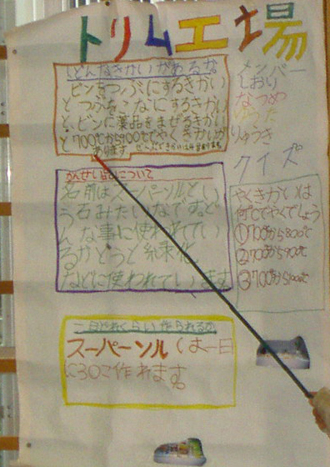 トリム工場
どんなきかいがあるか
ビンをつぶにするきかい
とつぶをこなにするきかい
と、ビンに薬品をまぜるきかい
と700℃から900℃でやくきかいが
あります
かんせいひんについて
名前はスーパーソルとい
う石みたいなです。ど
んな事に使われてい
るかというと糸录化
などに使われています
一日どれくらい作られるか
スーパーソルは一日
に30こ作れます。
メンバー
しおり
なつめ
ゆうた
りゅうき
クイズ
やくきかいは
何℃でやくでしょう
①700から800℃
②700から900℃
③700から1000℃